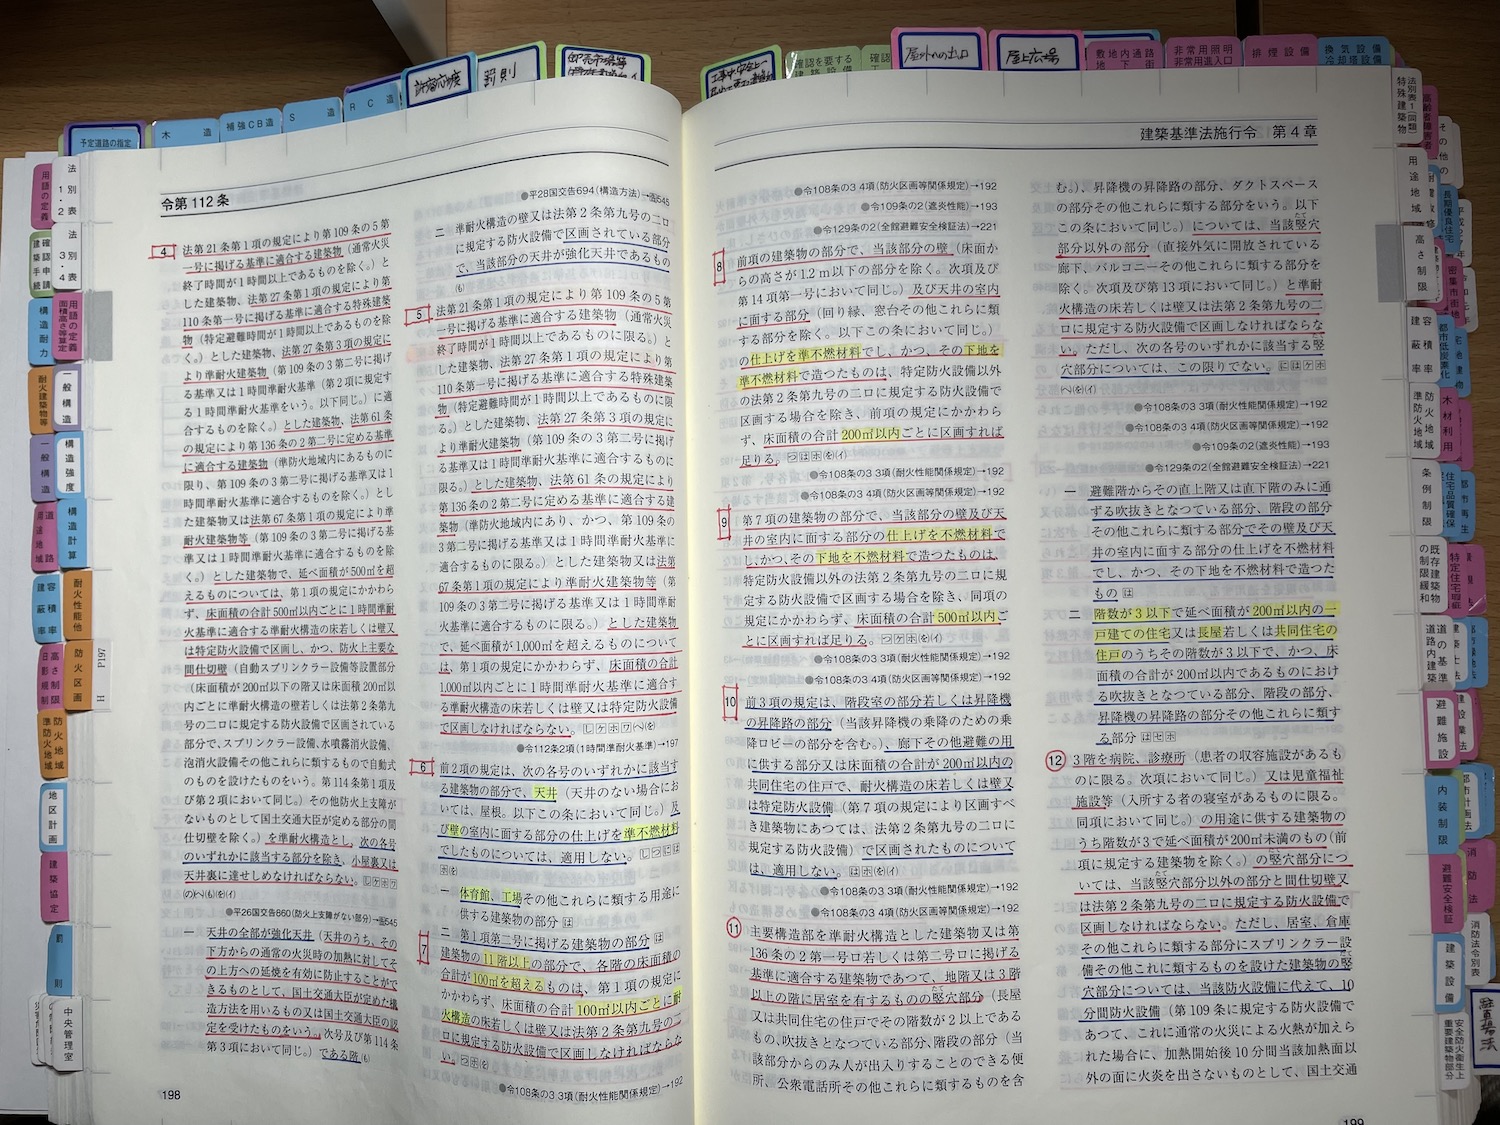 許容応力度
罰則
屋外への出口
屋上広場
敷地内通路
地下街
非常用照明
非常用進入口
排煙設備
換気設備
冷却塔設備
確認を要する
建築設備
予定道路の指定
木造
補強CB造
S造
RC造
令第112条
4 法第21条第1項の規定により第109条の5第
一号に掲げる基準に適合する建築物（通常火災
終了時間が1時間以上であるものを除く。）と
した建築物、法第27条第1項の規定により第
110条第一号に掲げる基準に適合する特殊建築
物（特定避難時間が1時間以上であるものを除
く。）とした建築物、法第27条第3項の規定に
より準耐火建築物（第109条の3第二号に掲げ
る基準又は1時間準耐火基準（第2項に規定す
る1時間準耐火基準をいう。以下同じ。）に適
合するものを除く。）とした建築物、法第61条
の規定により第136条の2第二号に定める基準
に適合する建築物（準防火地域内にあるものに
限り、第109条の3第二号に掲げる基準又は1
時間準耐火基準に適合するものを除く。）とし
た建築物又は法第67条第1項の規定により準
耐火建築物等（第109条の3第二号に掲げる基
準又は1時間準耐火基準に適合するものを除
く。）とした建築物で、延べ面積が500㎡を超
えるものについては、第1項の規定にかかわら
ず、床面積の合計500㎡以内ごとに1時間準耐
火基準に適合する準耐火構造の床若しくは壁又
は特定防火設備で区画し、かつ、防火上主要な
間仕切壁（自動スプリンクラー設備等設置部分
（床面積が200㎡以下の階又は床面積200㎡以
内ごとに準耐火構造の壁若しくは法第2条第九
号の二ロに規定する防火設備で区画されている
部分で、スプリンクラー設備、水噴霧消火設備、
泡消火設備その他これらに類するもので自動式
のものを設けたものをいう。第114条第1項及
び第2項において同じ。）その他防火上支障が
ないものとして国土交通大臣が定める部分の間
仕切壁を除く。）を準耐火構造とし、次の各号
のいずれかに該当する部分を除き、小屋裏又は
天井裏に達せしめなければならない。
●平26国交告860（防火上支障がない部分）→告545
一 天井の全部が強化天井（天井のうち、その
下方からの通常の火災時の加熱に対してそ
の上方への延焼を有効に防止することがで
きるものとして、国土交通大臣が定めた構
造方法を用いるもの又は国土交通大臣の認
定を受けたものをいう。次号及び第114条
第3項において同じ。）である階
●平28国交告694（構造方法）→告545
二 準耐火構造の壁又は法第2条第九号の二ロ
に規定する防火設備で区画されている部分
で、当該部分の天井が強化天井であるもの
5 法第21条第1項の規定により第109条の5第
一号に掲げる基準に適合する建築物（通常火災
終了時間が1時間以上であるものに限る。）と
した建築物、法第27条第1項の規定により第
110条第一号に掲げる基準に適合する特殊建築
物（特定避難時間が1時間以上であるものに限
る。）とした建築物、法第27条第3項の規定に
より準耐火建築物（第109条の3第二号に掲げ
る基準又は1時間準耐火基準に適合するものに
限る。）とした建築物、法第61条の規定により
第136条の2第二号に定める基準に適合する建
築物（準防火地域内にあり、かつ、第109条の
3第二号に掲げる基準又は1時間準耐火基準に
適合するものに限る。）とした建築物又は法第
67条第1項の規定により準耐火建築物等（第
109条の3第二号に掲げる基準又は1時間準耐
火基準に適合するものに限る。）とした建築物
で、延べ面積が1,000㎡を超えるものについて
は、第1項の規定にかかわらず、床面積の合計
1,000㎡以内ごとに1時間準耐火基準に適合す
る準耐火構造の床若しくは壁又は特定防火設備
で区画しなければならない。
●令112条2項（1時間準耐火基準）→197
6 前2項の規定は、次の各号のいずれかに該当す
る建築物の部分で、天井（天井のない場合にお
いては、屋根。以下この条において同じ。）及
び壁の室内に面する部分の仕上げを準不燃材料
でしたものについては、適用しない。
一 体育館、工場その他これらに類する用途に
供する建築物の部分
二 第1項第二号に掲げる建築物の部分
7 建築物の11階以上の部分で、各階の床面積の
合計が100㎡を超えるものは、第1項の規定に
かかわらず、床面積の合計100㎡以内ごとに耐
火構造の床若しくは壁又は法第2条第九号の二
ロに規定する防火設備で区画しなければならな
い。
●令108条の3 3項（耐火性能関係規定）→192
198
建築基準法施行令 第4章
●令108条の3 4項（防火区画等関係規定）→192
●令109条の2（遮炎性能）→193
●令129条の2（全館避難安全検証法）→221
8 前項の建築物の部分で、当該部分の壁（床面か
らの高さが1.2m以下の部分を除く。次項及び
第14項第一号において同じ。）及び天井の室内
に面する部分（回り縁、窓台その他これらに類
する部分を除く。以下この条において同じ。）
の仕上げを準不燃材料でし、かつ、その下地を
準不燃材料で造つたものは、特定防火設備以外
の法第2条第九号の二ロに規定する防火設備で
区画する場合を除き、前項の規定にかかわら
ず、床面積の合計200㎡以内ごとに区画すれば
足りる。
●令108条の3 3項（耐火性能関係規定）→192
●令108条の3 4項（防火区画等関係規定）→192
9 第7項の建築物の部分で、当該部分の壁及び天
井の室内に面する部分の仕上げを不燃材料で
し、かつ、その下地を不燃材料で造つたものは、
特定防火設備以外の法第2条第九号の二ロに規
定する防火設備で区画する場合を除き、同項の
規定にかかわらず、床面積の合計500㎡以内ご
とに区画すれば足りる。
●令108条の3 3項（耐火性能関係規定）→192
●令108条の3 4項（防火区画等関係規定）→192
10 前3項の規定は、階段室の部分若しくは昇降機
の昇降路の部分（当該昇降機の乗降のための乗
降ロビーの部分を含む。）、廊下その他避難の用
に供する部分又は床面積の合計が200㎡以内の
共同住宅の住戸で、耐火構造の床若しくは壁又
は特定防火設備（第7項の規定により区画すべ
き建築物にあつては、法第2条第九号の二ロに
規定する防火設備）で区画されたものについて
は、適用しない。
●令108条の3 3項（耐火性能関係規定）→192
●令108条の3 4項（防火区画等関係規定）→192
11 主要構造部を準耐火構造とした建築物又は第
136条の2第一号ロ若しくは第二号ロに掲げる
基準に適合する建築物であつて、地階又は3階
以上の階に居室を有するものの竪穴部分（長屋
又は共同住宅の住戸でその階数が2以上である
もの、吹抜きとなつている部分、階段の部分（当
該部分からのみ人が出入りすることのできる便
所、公衆電話所その他これらに類するものを含
む。）、昇降機の昇降路の部分、ダクトスペース
の部分その他これらに類する部分をいう。以下
この条において同じ。）については、当該竪穴
部分以外の部分（直接外気に開放されている
廊下、バルコニーその他これらに類する部分を
除く。次項及び第13項において同じ。）と準耐
火構造の床若しくは壁又は法第2条第九号の二
ロに規定する防火設備で区画しなければならな
い。ただし、次の各号のいずれかに該当する竪
穴部分については、この限りでない。
●令108条の3 3項（耐火性能関係規定）→192
●令108条の3 4項（防火区画等関係規定）→192
●令109条の2（遮炎性能）→193
●令129条の2（全館避難安全検証法）→221
一 避難階からその直上階又は直下階のみに通
ずる吹抜きとなつている部分、階段の部分
その他これらに類する部分でその壁及び天
井の室内に面する部分の仕上げを不燃材料
でし、かつ、その下地を不燃材料で造つた
もの
二 階数が3以下で延べ面積が200㎡以内の一
戸建ての住宅又は長屋若しくは共同住宅の
住戸のうちその階数が3以下で、かつ、床
面積の合計が200㎡以内であるものにおけ
る吹抜きとなつている部分、階段の部分、
昇降機の昇降路の部分その他これらに類す
る部分
12 3階を病院、診療所（患者の収容施設があるも
のに限る。次項において同じ。）又は児童福祉
施設等（入所する者の寝室があるものに限る。
同項において同じ。）の用途に供する建築物の
うち階数が3で延べ面積が200㎡未満のもの（前
項に規定する建築物を除く。）の竪穴部分につ
いては、当該竪穴部分以外の部分と間仕切壁又
は法第2条第九号の二ロに規定する防火設備で
区画しなければならない。ただし、居室、倉庫
その他これらに類する部分にスプリンクラー設
備その他これに類するものを設けた建築物の竪
穴部分については、当該防火設備に代えて、10
分間防火設備（第109条に規定する防火設備で
あつて、これに通常の火災による火熱が加えら
れた場合に、加熱開始後10分間当該加熱面以
外の面に火炎を出さないものとして、国土交通
199
用語の定義
法別表1・2
法別表3・4
構造耐力
一般構造
耐火建築物等
構造強度
構造計算
耐火性能他
防火区画
P197
地区計画
建築協定
罰則
中央管理室
用途地域
高さ制限
容積率
建蔽率
防火地域
準防火地域
条例制限
既存建築物
の制限緩和
避難施設
内装制限
避難安全検証
建築設備
消防法
都市計画法
駐車場法